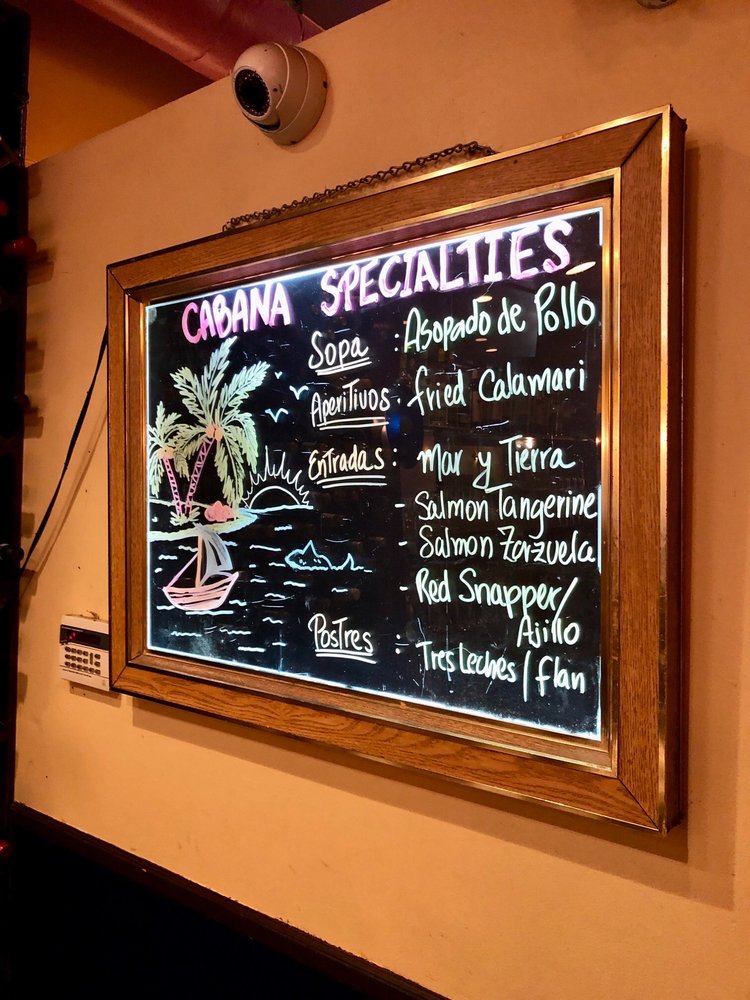 CABANA SPECIALTIES
Sopa : Asopado de Pollo
Aperitivos : fried Calamari
Entradas : Mar y Tierra
- Salmon Tangerine
- Salmon Zarzuela
- Red Snapper/
Ajillo
Postres : Tres Leches / flan